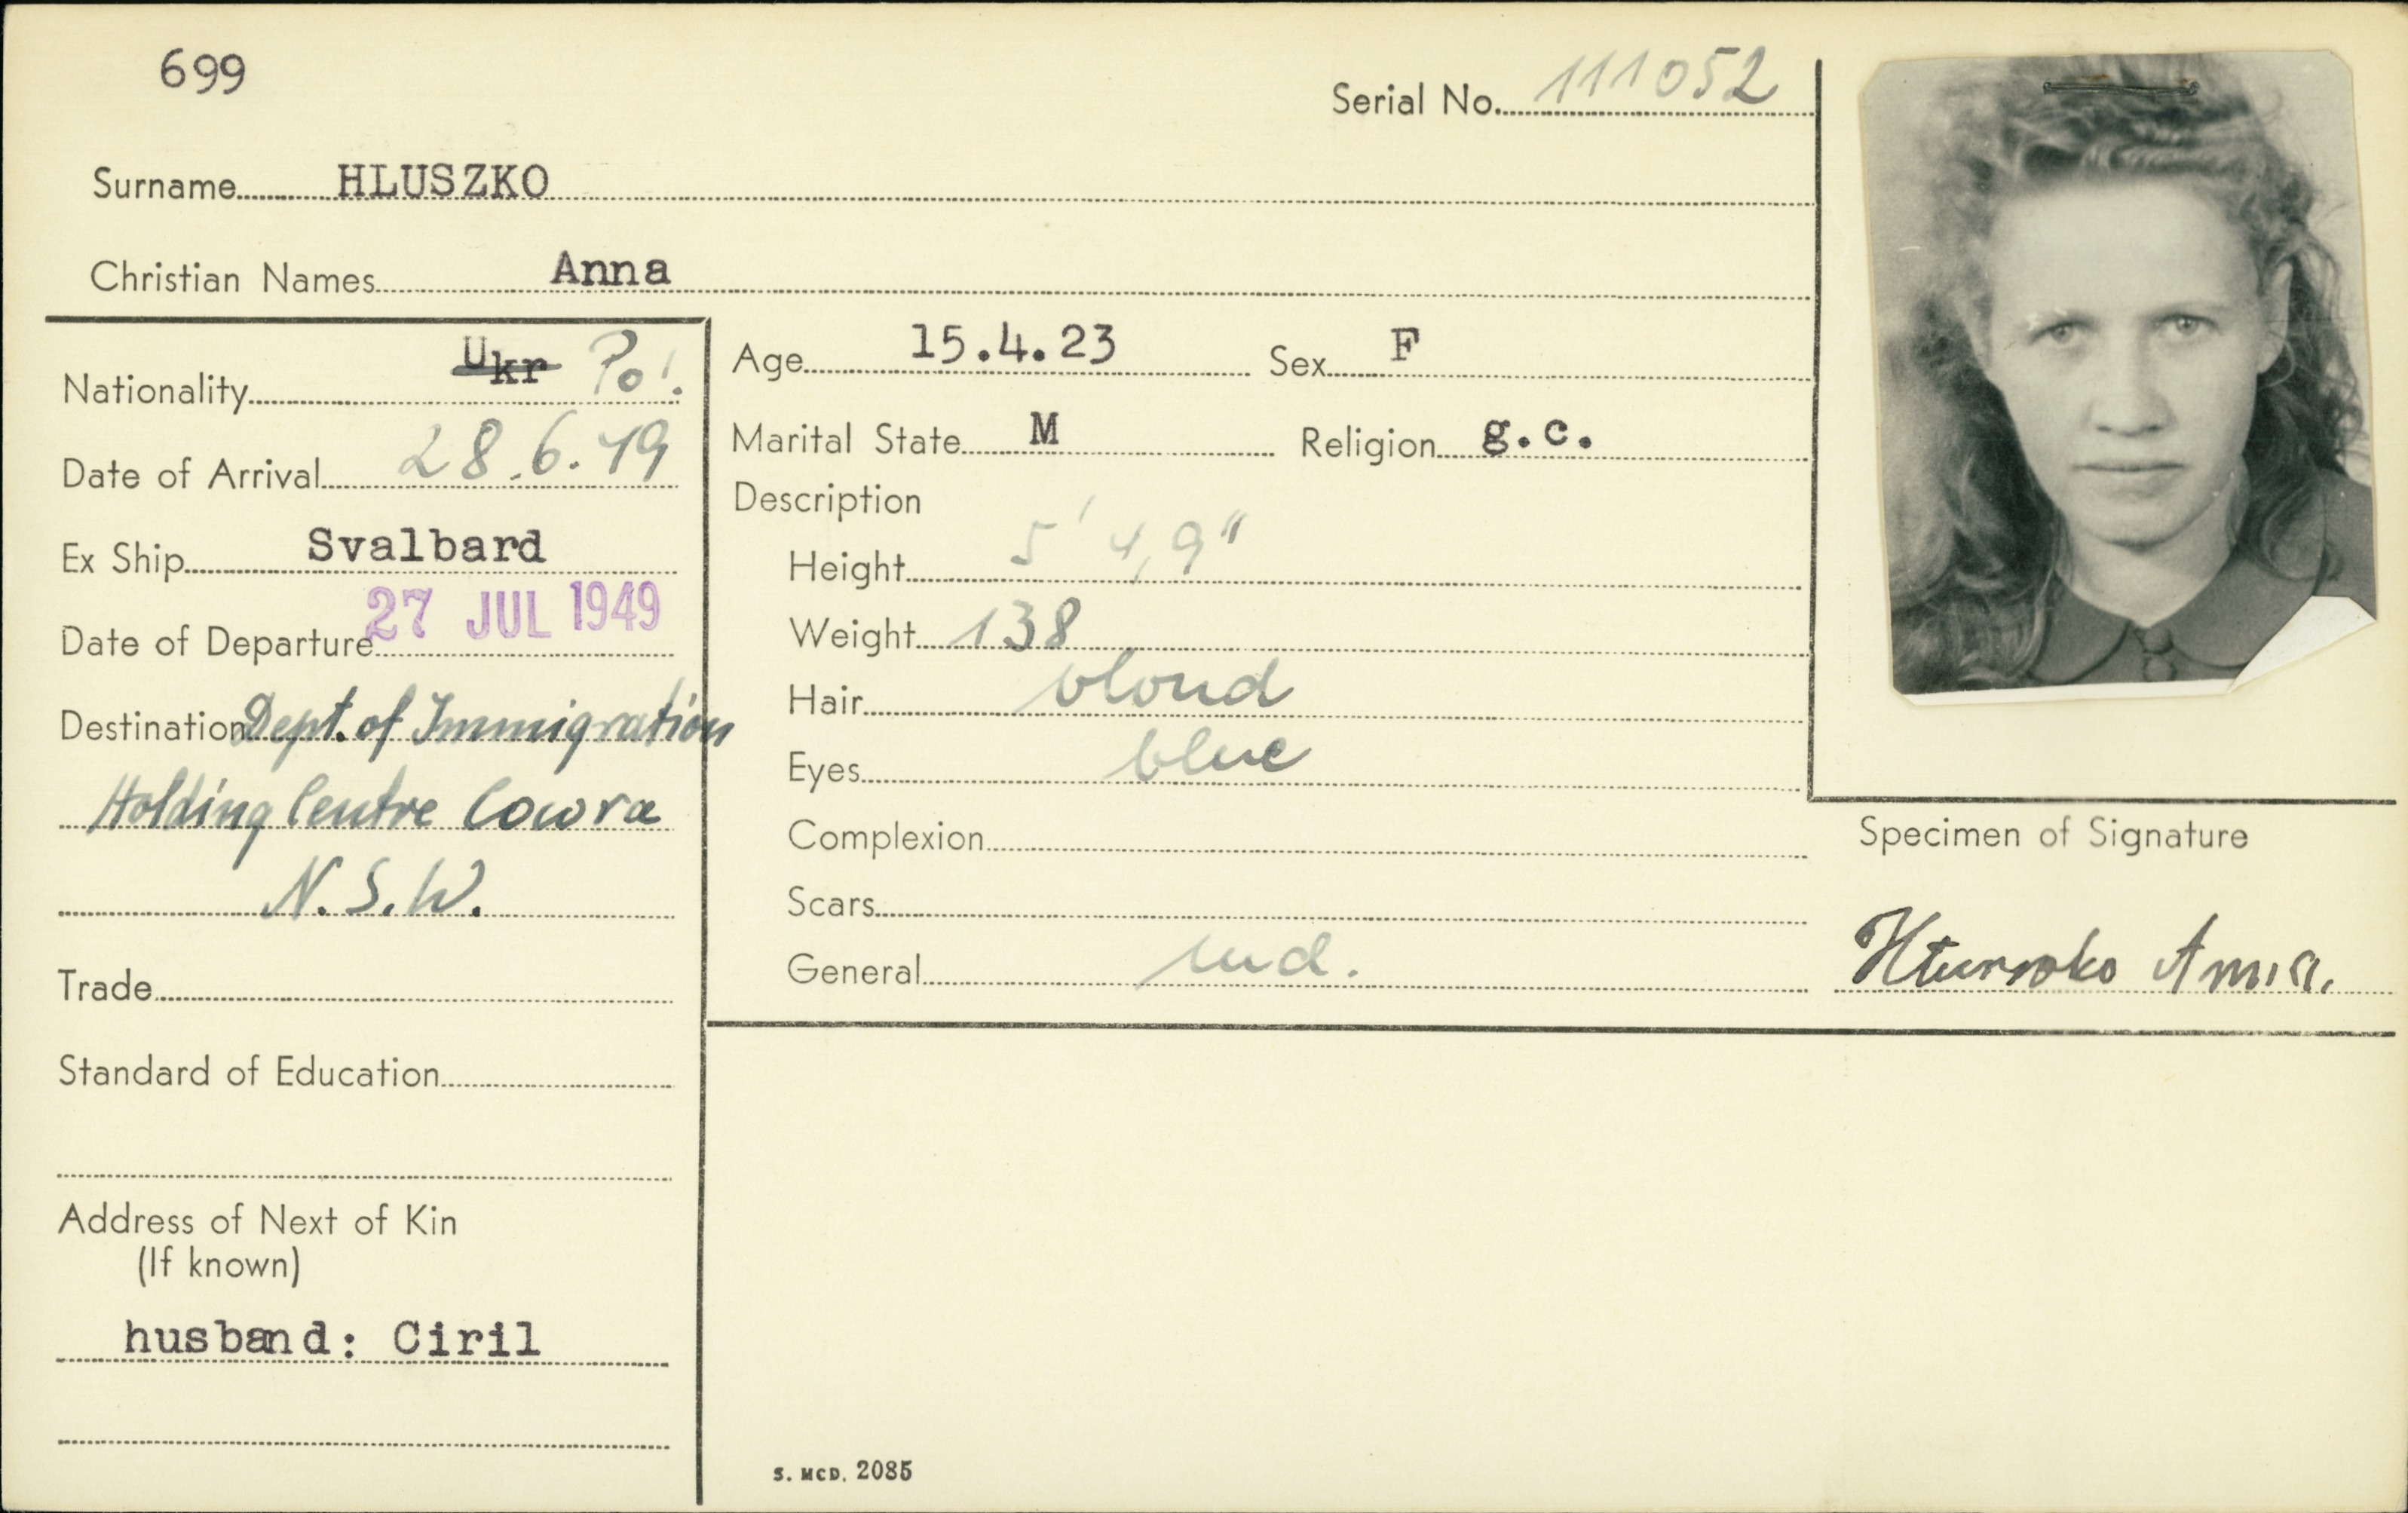 699
Serial No. 111052
Surname HLUSZKO
Christian Names Anna
Nationality Ukr Pol.
Date of Arrival 28.6.49
Ex Ship Svalbard
Date of Departure 27 JUL 1949
Destination Dept. of Immigration
Holding Centre Cowra
N.S.W.
Trade
Standard of Education
Address of Next of Kin
(If known)
husband: Ciril
Age 15.4.23 Sex F
Marital State M Religion g.c.
Description
Height 5' 4,9"
Weight 138
Hair blond
Eyes blue
Complexion
Scars
General
Specimen of Signature
Hłuszko Anna.
S. MCD. 2085